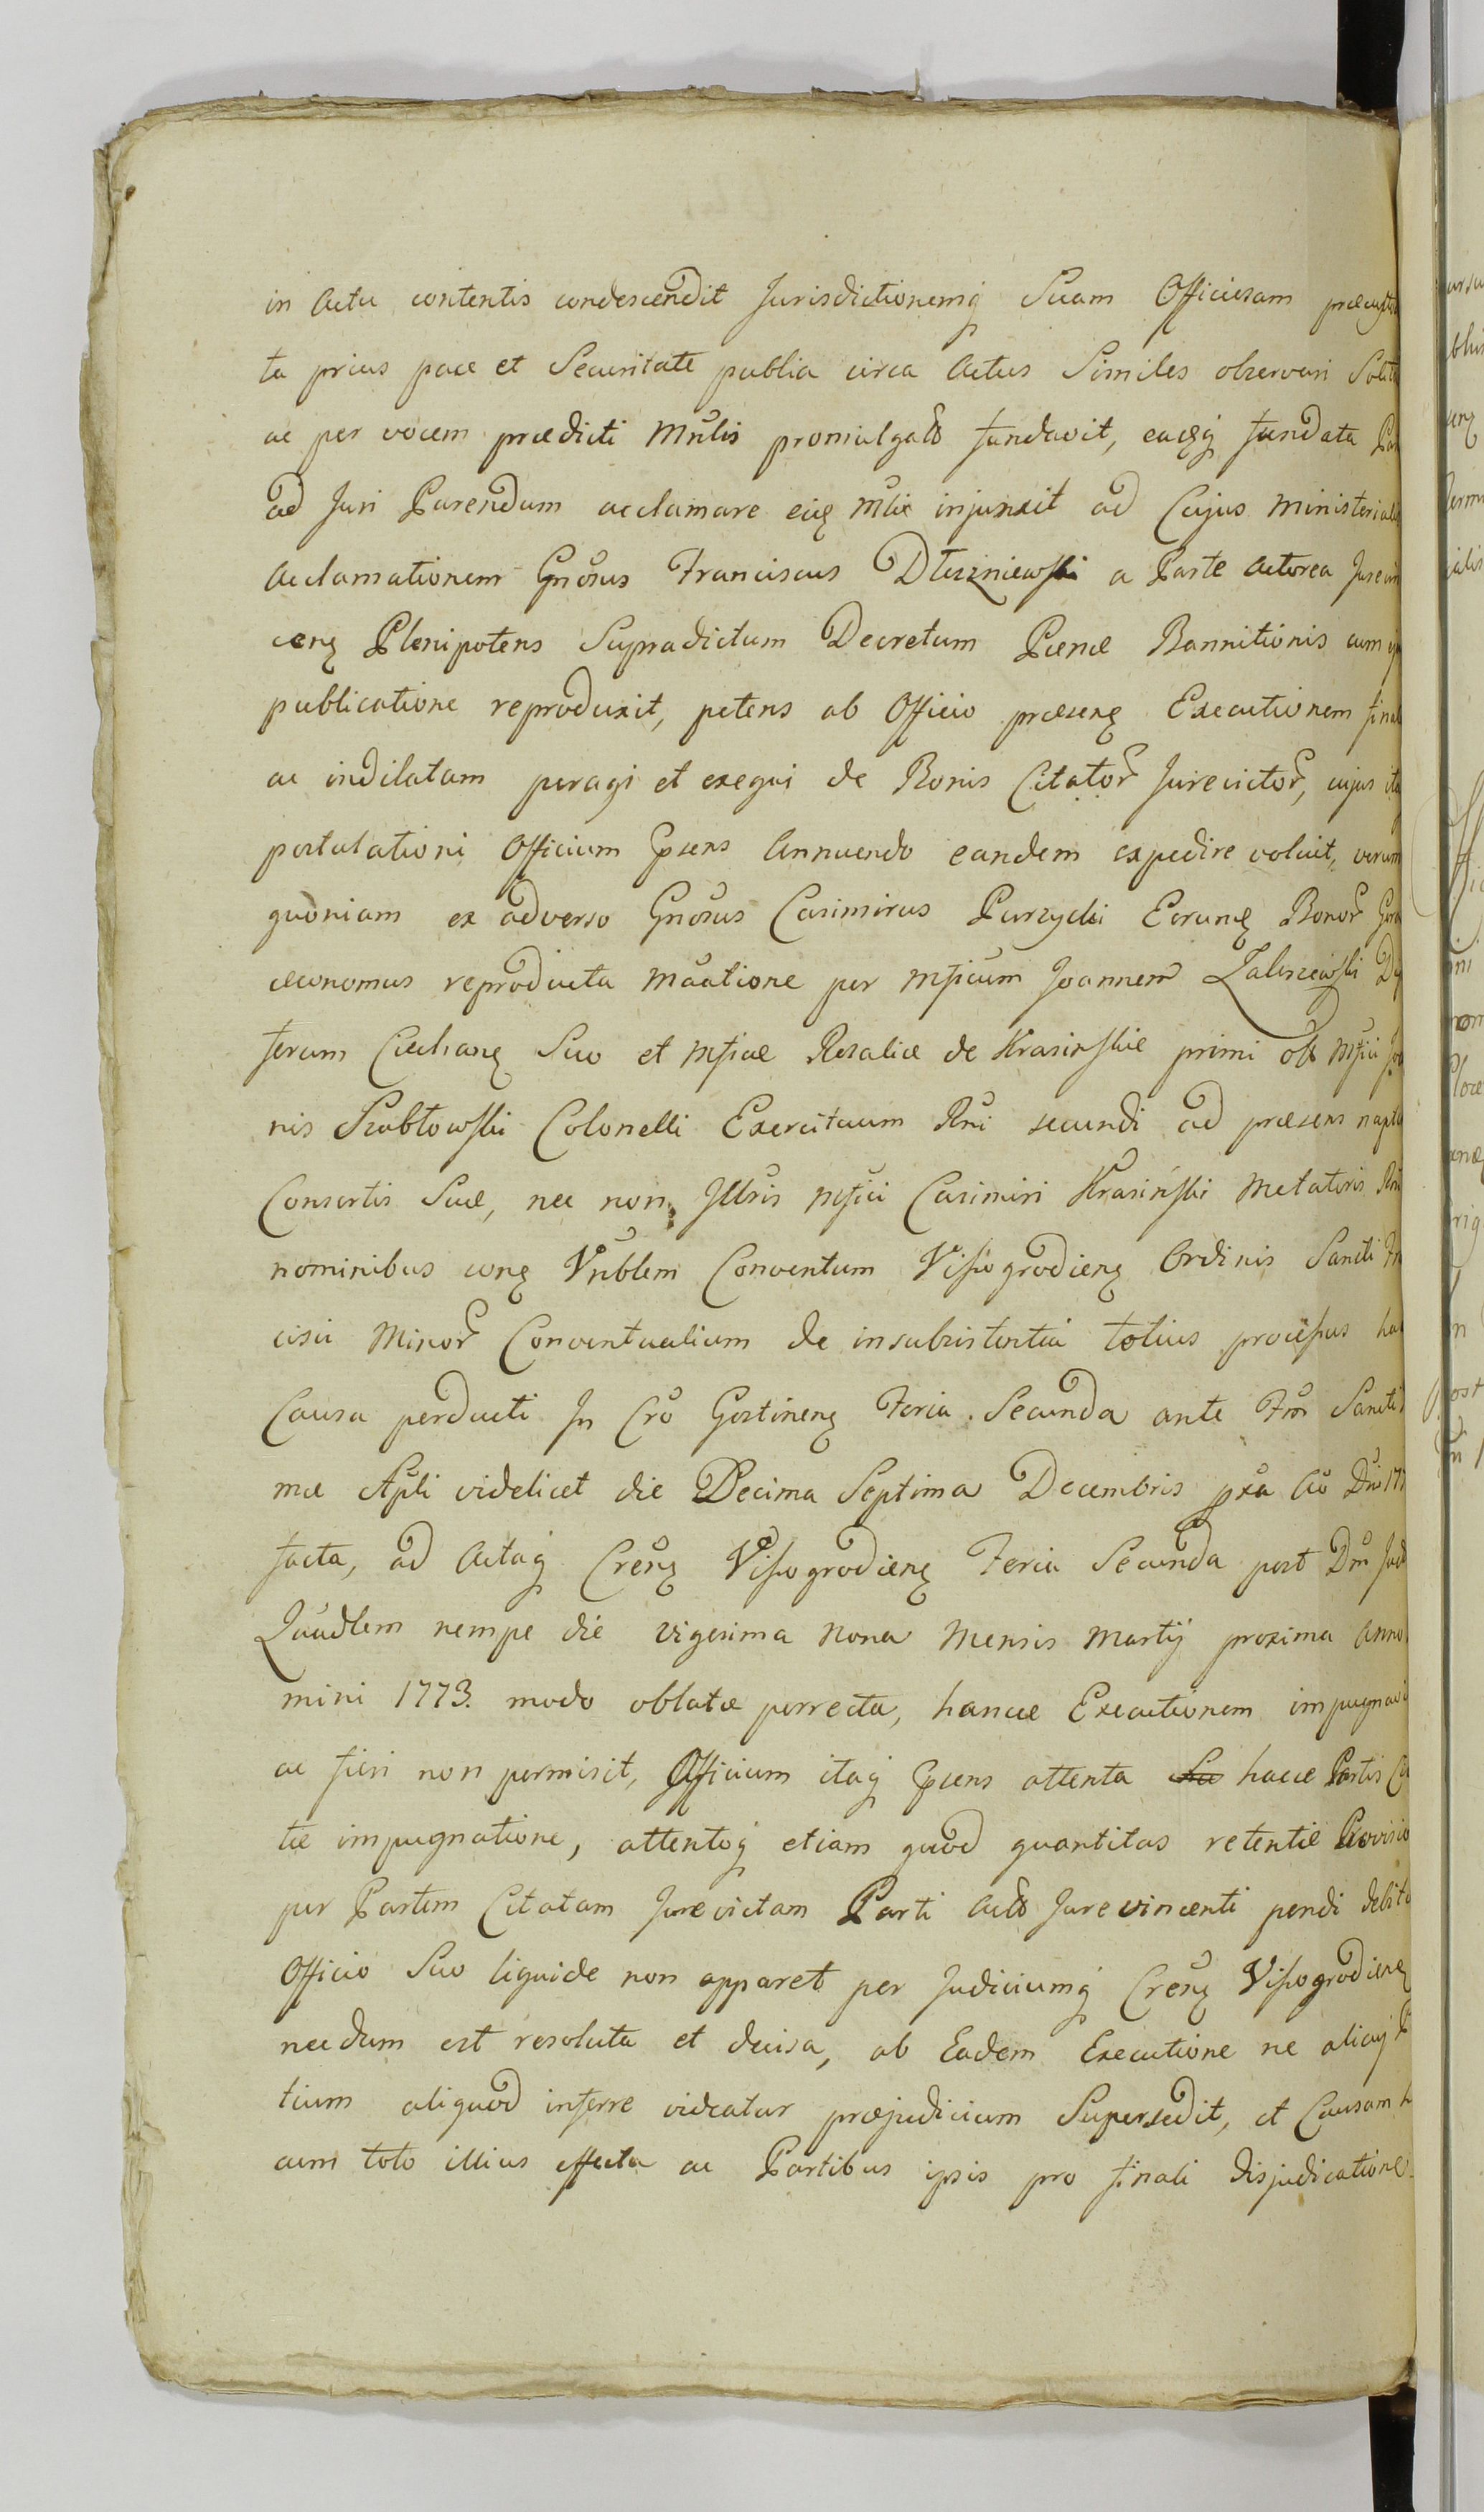 in Actu contentis condescendit Jurisdictionemq Suam Officiosam præcusto
ta prius pace et Securitate publica circa Actus Similes observari Solita
ac per vocem prædicti Mnlis promulgato fundavit, eaqq fundata
ad Juri Parendum acclamare eiq Mlis injunxit ad Cujus Ministerialis
Acclamationem Gnosus Franciscus Dłuzniewski a Parte Actorea Jurevin
cenę Plenipotens Supradictum Decretum Pœnæ Bannitionis cum
publicatione reproduxit, petens ab Officio præsenę Executionem final
ac indilatam peragi et exequi de Bonis Citator Jurevictor, cujus ita
postulationi Officium Pssens Annuendo eandem expedire voluit, verum
quoniam ex adverso Gnosus Casimirus Purzycki Eorumę Bonor
œconomus reproducta Mttione per Mficum Joannem Zaluszewski
ferum Ciechanę Suo et Mficæ Rosaliæ de Krasinskie primi olt Mfici
nis Szabłowski Colonelli Exercituum Rni secundi ad præsens nupta
Consortis Suæ, nec non Illris Mfici Casimiri Krasiński Metatoris Rni
nominibus conę Vnblem Conventum Vissogrodienę Ordinis Sancti
cisci Minor Conventualium de insubsistentia totius processus
Causa perducti In Cro Gostinenę Feria Secunda ante Fm Sancti
mæ Apli videlicet die Decima Septima Decembris pxa Ao Dni 177
facta, ad Actaq Crenę Vissogrodienę Feria Secunda post Dm Jud
Quadlem nempe die vigesima nona Mensis Martij proxima Anno
mini 1773. modo oblatæ perrecta, hancce Executionem impugnavi
ac fieri non permisit, Officium itaq Pssens attenta hacce Partis
tæ impugnatione, attentoq etiam quod quantitas retentæ Provisio
per Partem Citatam Jure victam Parti Acto Jure vincenti pendi debita
Officio Suo liquide non apparet per Judiciumq Crenę Vissogrodienę
necdum est resoluta et decisa, ab Eadem Executione ne alicuj
tium aliquod inferre videatur præjudicium Supersedit, et Causam
cum toto illius effectu ac Partibus ipsis pro finali disjudicatione